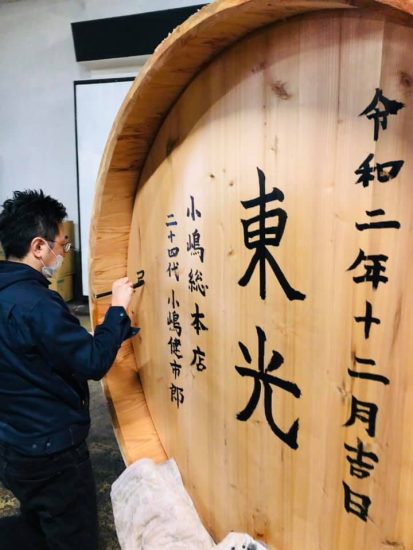 令和二年十二月吉日
東光
小嶋総本店
二十四代 小嶋健市郎